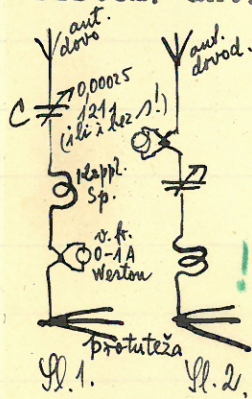 ant.
dovo
ant.
dovod.
C 0,00025
(ili i bez 1!)
Sp.
v. fr.
0-1A
Weston
protuteža
Sl. 1.
Sl. 2.
!